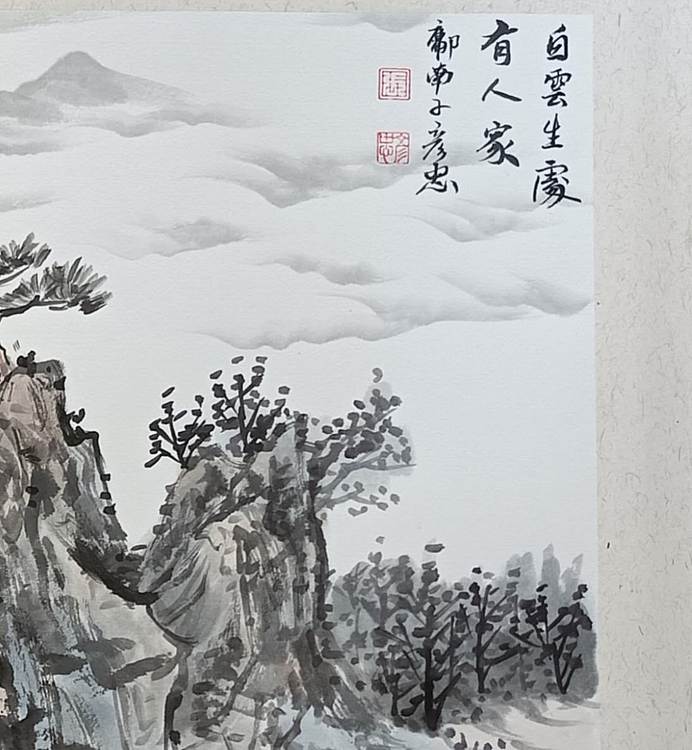 白雲生處
有人家
鄘南子彦忠